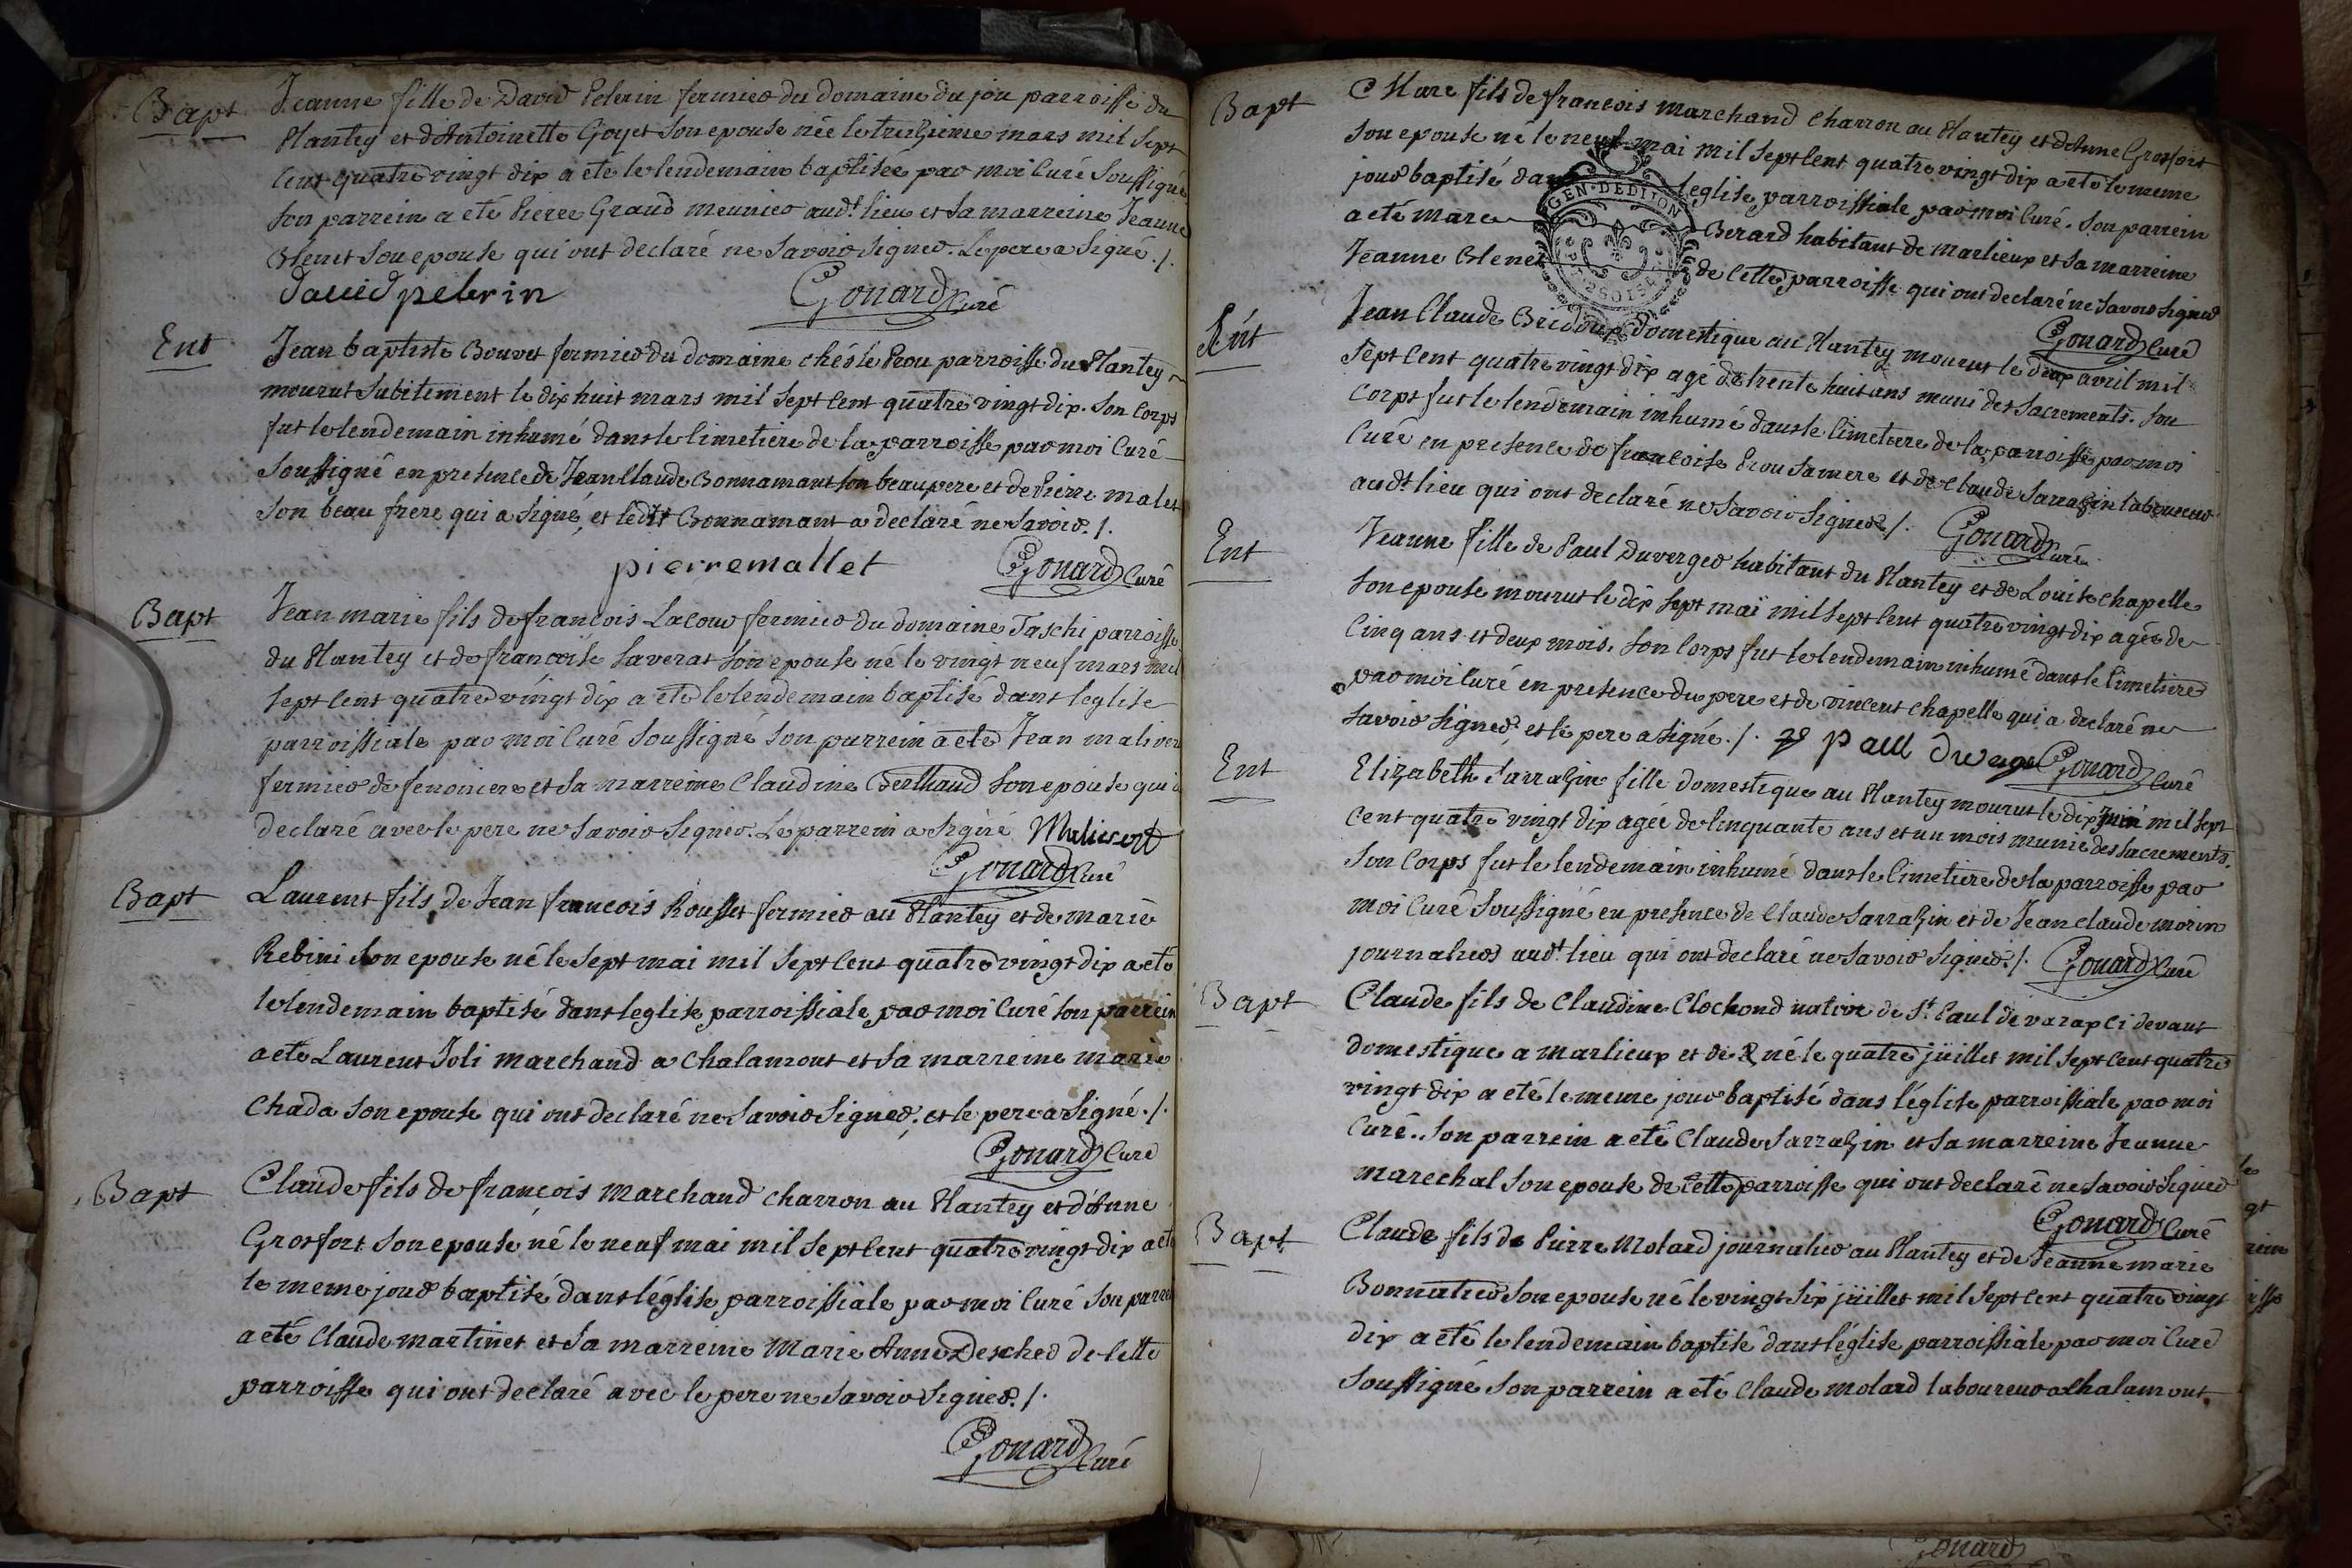 Bapt
Jeanne fille de David Pelerin fermier du domaine du jou parroisse du
Plantey et d'Antoinette Goyet son epouse née le treizieme mars mil sept
cent quatre vingt dix a été le lendemain baptisée par moi curé soussigné
son parrein a eté Pierre Graud meunier aud.t lieu et sa marreine Jeanne
Blenet son epouse qui ont declaré ne savoir signer. Le pere a signé./.
david pelerin Gonard curé
Ent
Jean baptiste Bouvet fermier du domaine chés le Prou parroisse du Plantey
mourut subitement le dix huit mars mil sept cent quatre vingt dix. Son corps
fut le lendemain inhumé dans le cimetiere de la parroisse par moi curé
soussigné en presence de Jean Claude Bonnamant son beau pere et de Pierre malet
son beau frere qui a signé, et ledit Bonnamant a declaré ne savoir./.
pierre mallet Gonard curé
Bapt
Jean marie fils de francois Lacour fermier du domaine Taschi parroisse
du Plantey et de francoise Saverat son epouse né le vingt neuf mars mil
sept cent quatre vingt dix a eté le lendemain baptisé dans leglise
parroissiale par moi curé soussigné son parrein a eté Jean maliver
fermier de fenoniere et sa marreine Claudine Berthaud son epouse qui a
declaré avec le pere ne savoir signer. Le parrein a signé Malivert
Gonard curé
Bapt
Laurent fils de Jean francois Rousset fermier au Plantey et de marie
Rebini son epouse né le sept mai mil sept cent quatre vingt dix a eté
le lendemain baptisé dans leglise parroissiale par moi curé son parrein
a eté Laurent Joli marchand a chalamont et sa marreine marie
chada son epouse qui ont declaré ne savoir signer, et le pere a signé./.
Gonard curé
Bapt
Claude fils de françois marchand charron au Plantey et d'Anne
Grosfort son epouse né le neuf mai mil sept cent quatre vingt dix a eté
le meme jour baptisé dans léglise parroissiale par moi curé son parrein
a eté Claude martinet et sa marreine Marie Anne Desched de cette
parroisse qui ont declaré avec le pere ne savoir signer./.
Gonard curé
Bapt
Marc fils de francois marchand charron au Plantey et d'Anne Grosfort
son epouse né le neuf mai mil sept cent quatre vingt dix a eté le meme
jour baptisé dans leglise parroissiale par moi curé. Son parrein
a eté marc Berard habitant de marlieux et sa marreine
Jeanne Blenet de cette parroisse qui ont declaré ne savoir signer
GEN·DEDITION
Gonard curé
Ent
Jean Claude Bridoux domestique au Plantey mourut le deux avril mil
sept cent quatre vingt dix agé de trente huit ans muni des sacrements. Son
corps fut le lendemain inhumé dans le cimetiere de la parroisse par moi
curé en presence de francoise Prou sa mere et de claude Sarrazin laboureur
aud.t lieu qui ont declaré ne savoir signer./. Gonard curé
Ent
Jeanne fille de Paul Duverger habitant du Plantey et de Louise chapelle
son epouse mourut le dix sept mai mil sept cent quatre vingt dix agée de
cinq ans et deux mois. Son corps fut le lendemain inhumé dans le cimetiere
par moi curé en presence du pere et de vincent chapelle qui a declaré ne
savoir signer, et le pere a signé./. paul Gonard curé
Ent
Elizabeth Sarrazin fille domestique au Plantey mourut le dix juin mil sept
cent quatre vingt dix agée de cinquante ans et un mois munie des sacrements.
Son corps fut le lendemain inhumé dans le cimetiere de la parroisse par
moi curé soussigné en presence de Claude Sarrazin et de Jean claude morin
journaliers aud.t lieu qui ont declaré ne savoir signer./. Gonard curé
Bapt
Claude fils de Claudine Clochond native de S.t Paul de varax ci devant
domestique a marlieux et de R né le quatre juillet mil sept cent quatre
vingt dix a eté le meme jour baptisé dans l'église parroissiale par moi
curé. Son parrein a eté Claude Sarrazin et sa marreine Jeanne
marechal son epouse de cette parroisse qui ont declaré ne savoir signer
Gonard curé
Bapt
Claude fils de Pierre Molard journalier au Plantey et de Jeanne marie
Bonnatier son epouse né le vingt six juillet mil sept cent quatre vingt
dix a eté le lendemain baptisé dans l'église parroissiale par moi curé
soussigné son parrein a eté Claude molard laboureur a chalamont